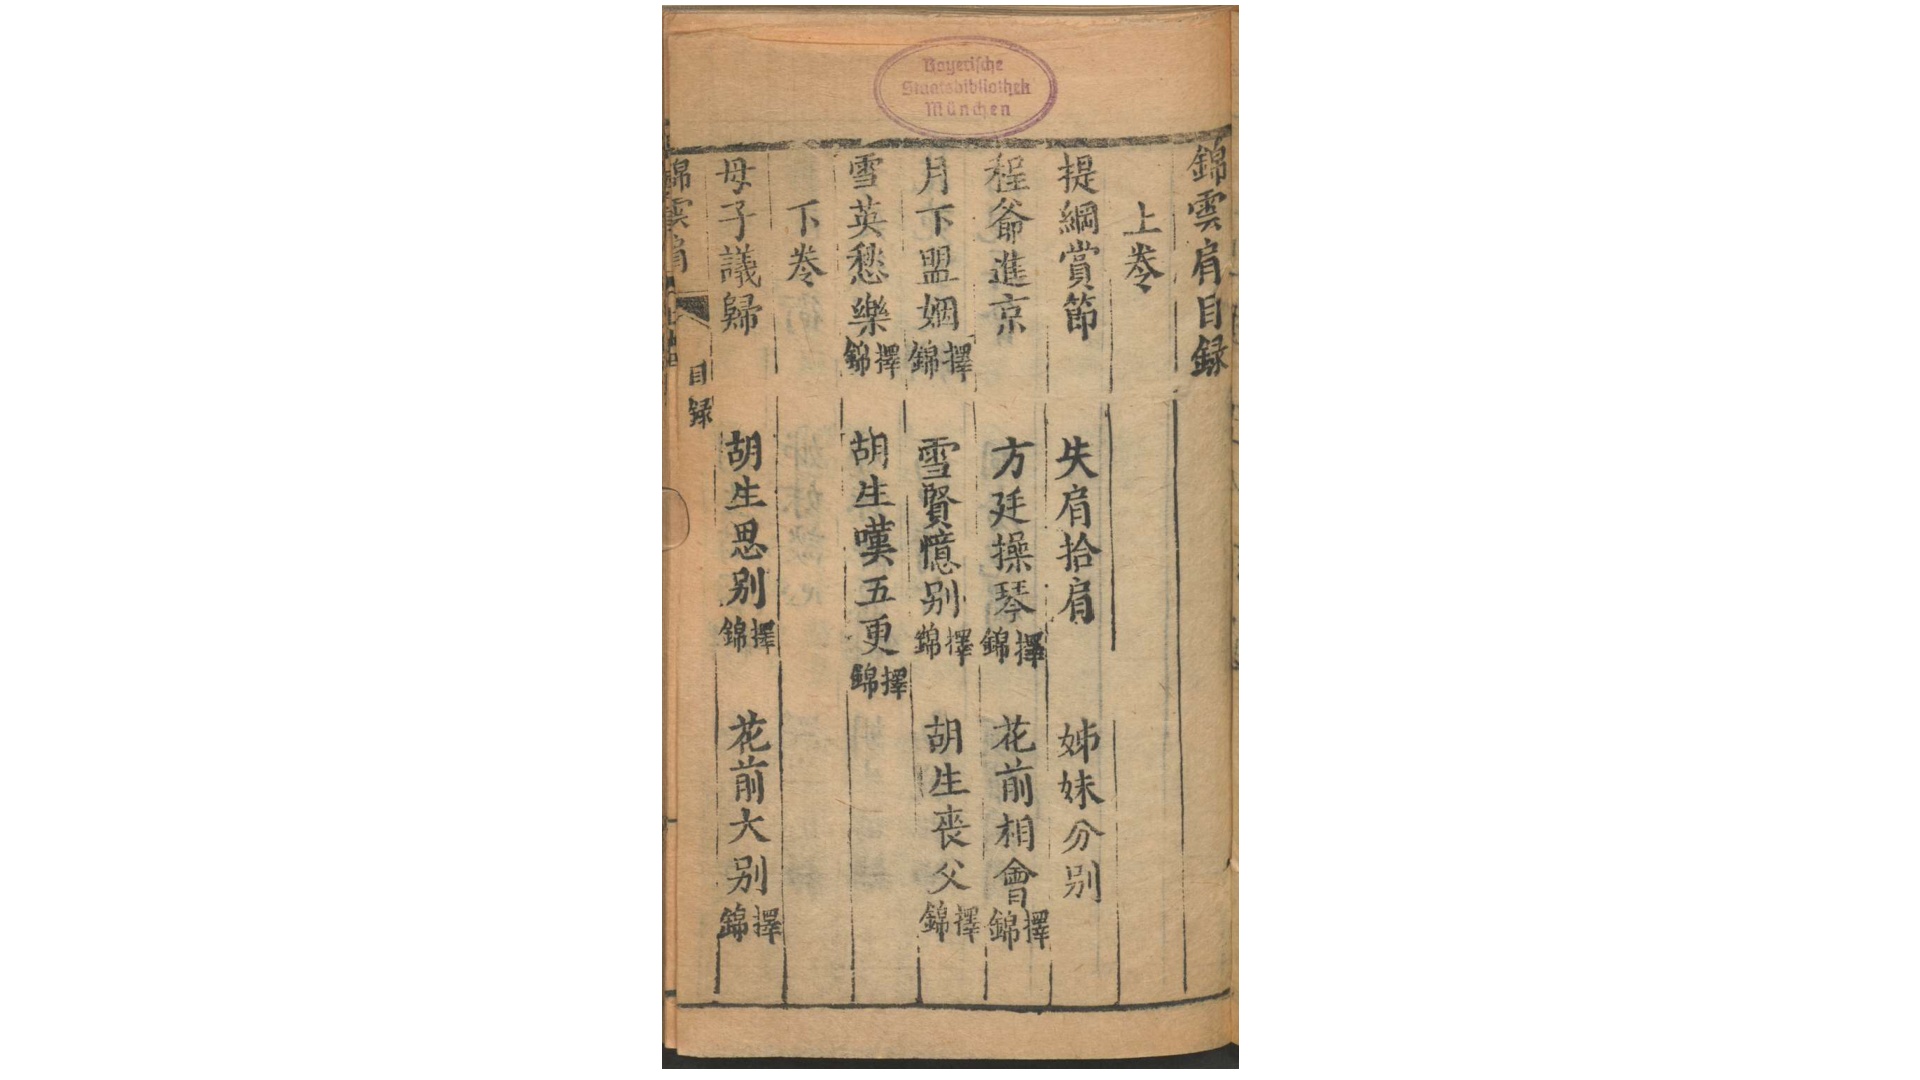 Bayerische
Staatsbibliothek
München
錦雲肩目録
上卷
提綱賞節　失肩拾肩　姊妹分別
程爺進京　方廷操琴擇錦　花前相會擇錦
月下盟姻擇錦　雪賢憶別擇錦　胡生喪父擇錦
雪英愁樂擇錦　胡生嘆五更擇錦
下卷
母子議歸　胡生思別擇錦　花前大別擇錦
目録
錦雲肩